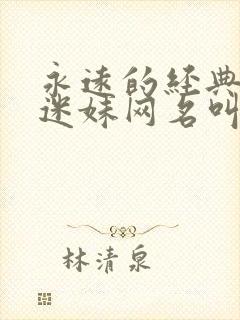 永远的经典
迷妹网名叫
林清泉